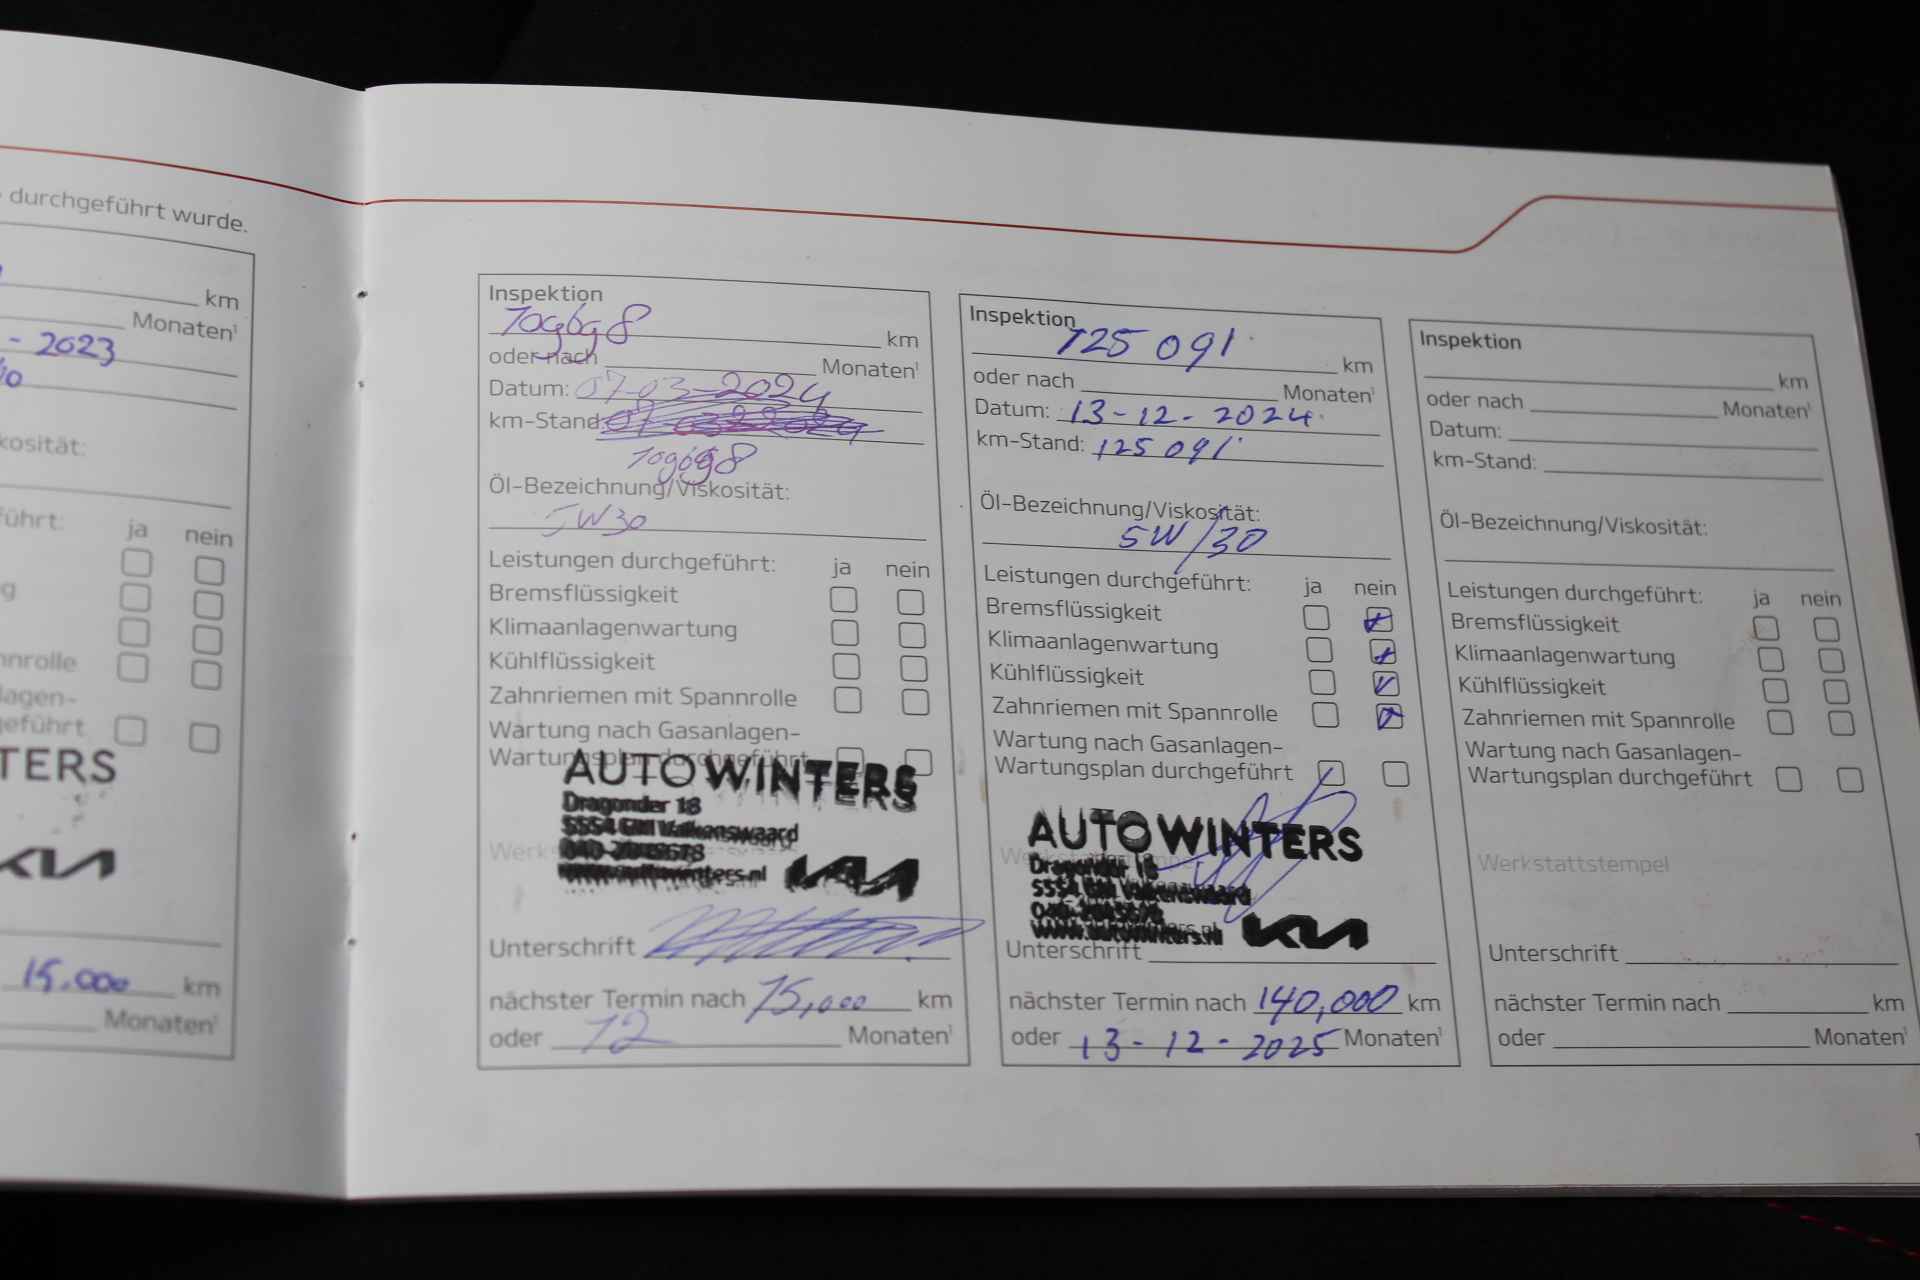 durchgeführt wurde.
km
Monaten¹
- 2023
kosität:
führt: ja nein
g
nnrolle
lagen-
geführt
TERS
KIA
15.000 km
Monaten¹
Inspektion
109698 km
oder nach Monaten¹
Datum: 07-03-2024
km-Stand:
109698
Öl-Bezeichnung/Viskosität:
5W30
Leistungen durchgeführt: ja nein
Bremsflüssigkeit
Klimaanlagenwartung
Kühlflüssigkeit
Zahnriemen mit Spannrolle
Wartung nach Gasanlagen-
Wartungsplan durchgeführt
AUTO WINTERS
Dragonder 18
5554 GM Valkenswaard
www.autowinters.nl
KIA
Unterschrift
nächster Termin nach 15,000 km
oder 12 Monaten¹
Inspektion
125 091 km
oder nach Monaten¹
Datum: 13-12-2024
km-Stand: 125 091
Öl-Bezeichnung/Viskosität:
5W/30
Leistungen durchgeführt: ja nein
Bremsflüssigkeit
Klimaanlagenwartung
Kühlflüssigkeit
Zahnriemen mit Spannrolle
Wartung nach Gasanlagen-
Wartungsplan durchgeführt
Werkstattstempel
AUTO WINTERS
Dragonder 18
5554 GM Valkenswaard
www.autowinters.nl
KIA
Unterschrift
nächster Termin nach 140,000 km
oder 13-12-2025 Monaten¹
Inspektion
km
oder nach Monaten¹
Datum:
km-Stand:
Öl-Bezeichnung/Viskosität:
Leistungen durchgeführt: ja nein
Bremsflüssigkeit
Klimaanlagenwartung
Kühlflüssigkeit
Zahnriemen mit Spannrolle
Wartung nach Gasanlagen-
Wartungsplan durchgeführt
Werkstattstempel
Unterschrift
nächster Termin nach km
oder Monaten¹